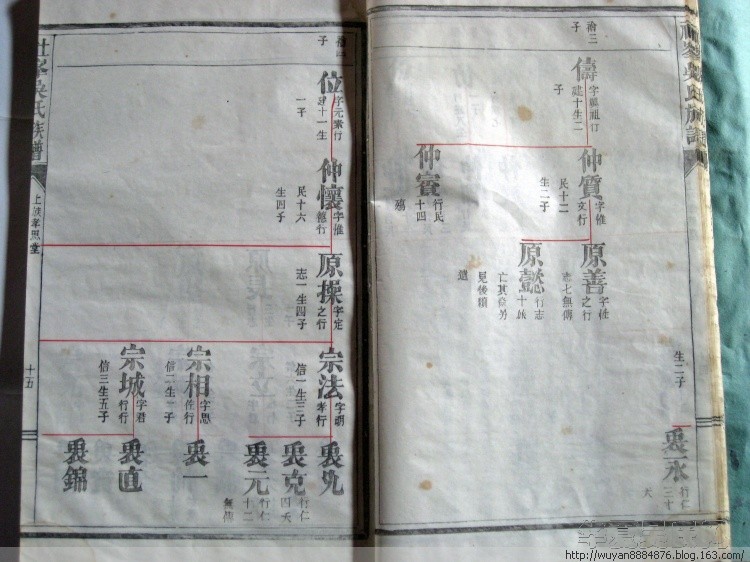 裕三
子
儔
字顯祖行
建十生二
子
仲賓
字惟
文行
民十二
生二子
仲賔
行民
十四
殤
原善
字性
之行
志七無傳
原懿
行志
十故
亡其後另
見後續
遺
生二子
褁永
行仁
三十
夭
吳氏族譜
子
位
字元素行
建十一生
一子
仲懷
字惟
德行
民十六
生四子
原操
字定
之行
志一生四子
宗法
字明
孝行
信一生三子
宗相
字思
行
宗城
字君
行行
信三生五子
褁克
行仁
四夭
褁元
行仁
十二
無傳
褁一
褁直
褁錦
吳氏族譜
上族孝思堂
十五
http://wuyan8884876.blog.163.com/